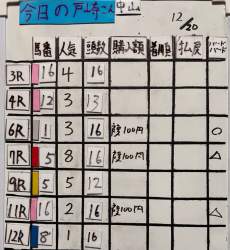 今日の戸崎さん 中山 12/20
馬番 人気 頭数 購入額 着順 払戻 ハードバード
3R 16 4 16
4R 12 3 13
6R 1 3 16 複100円 ○
7R 5 8 16 複100円 △
9R 5 5 12
11R 16 2 16 複100円 △
12R 8 1 16